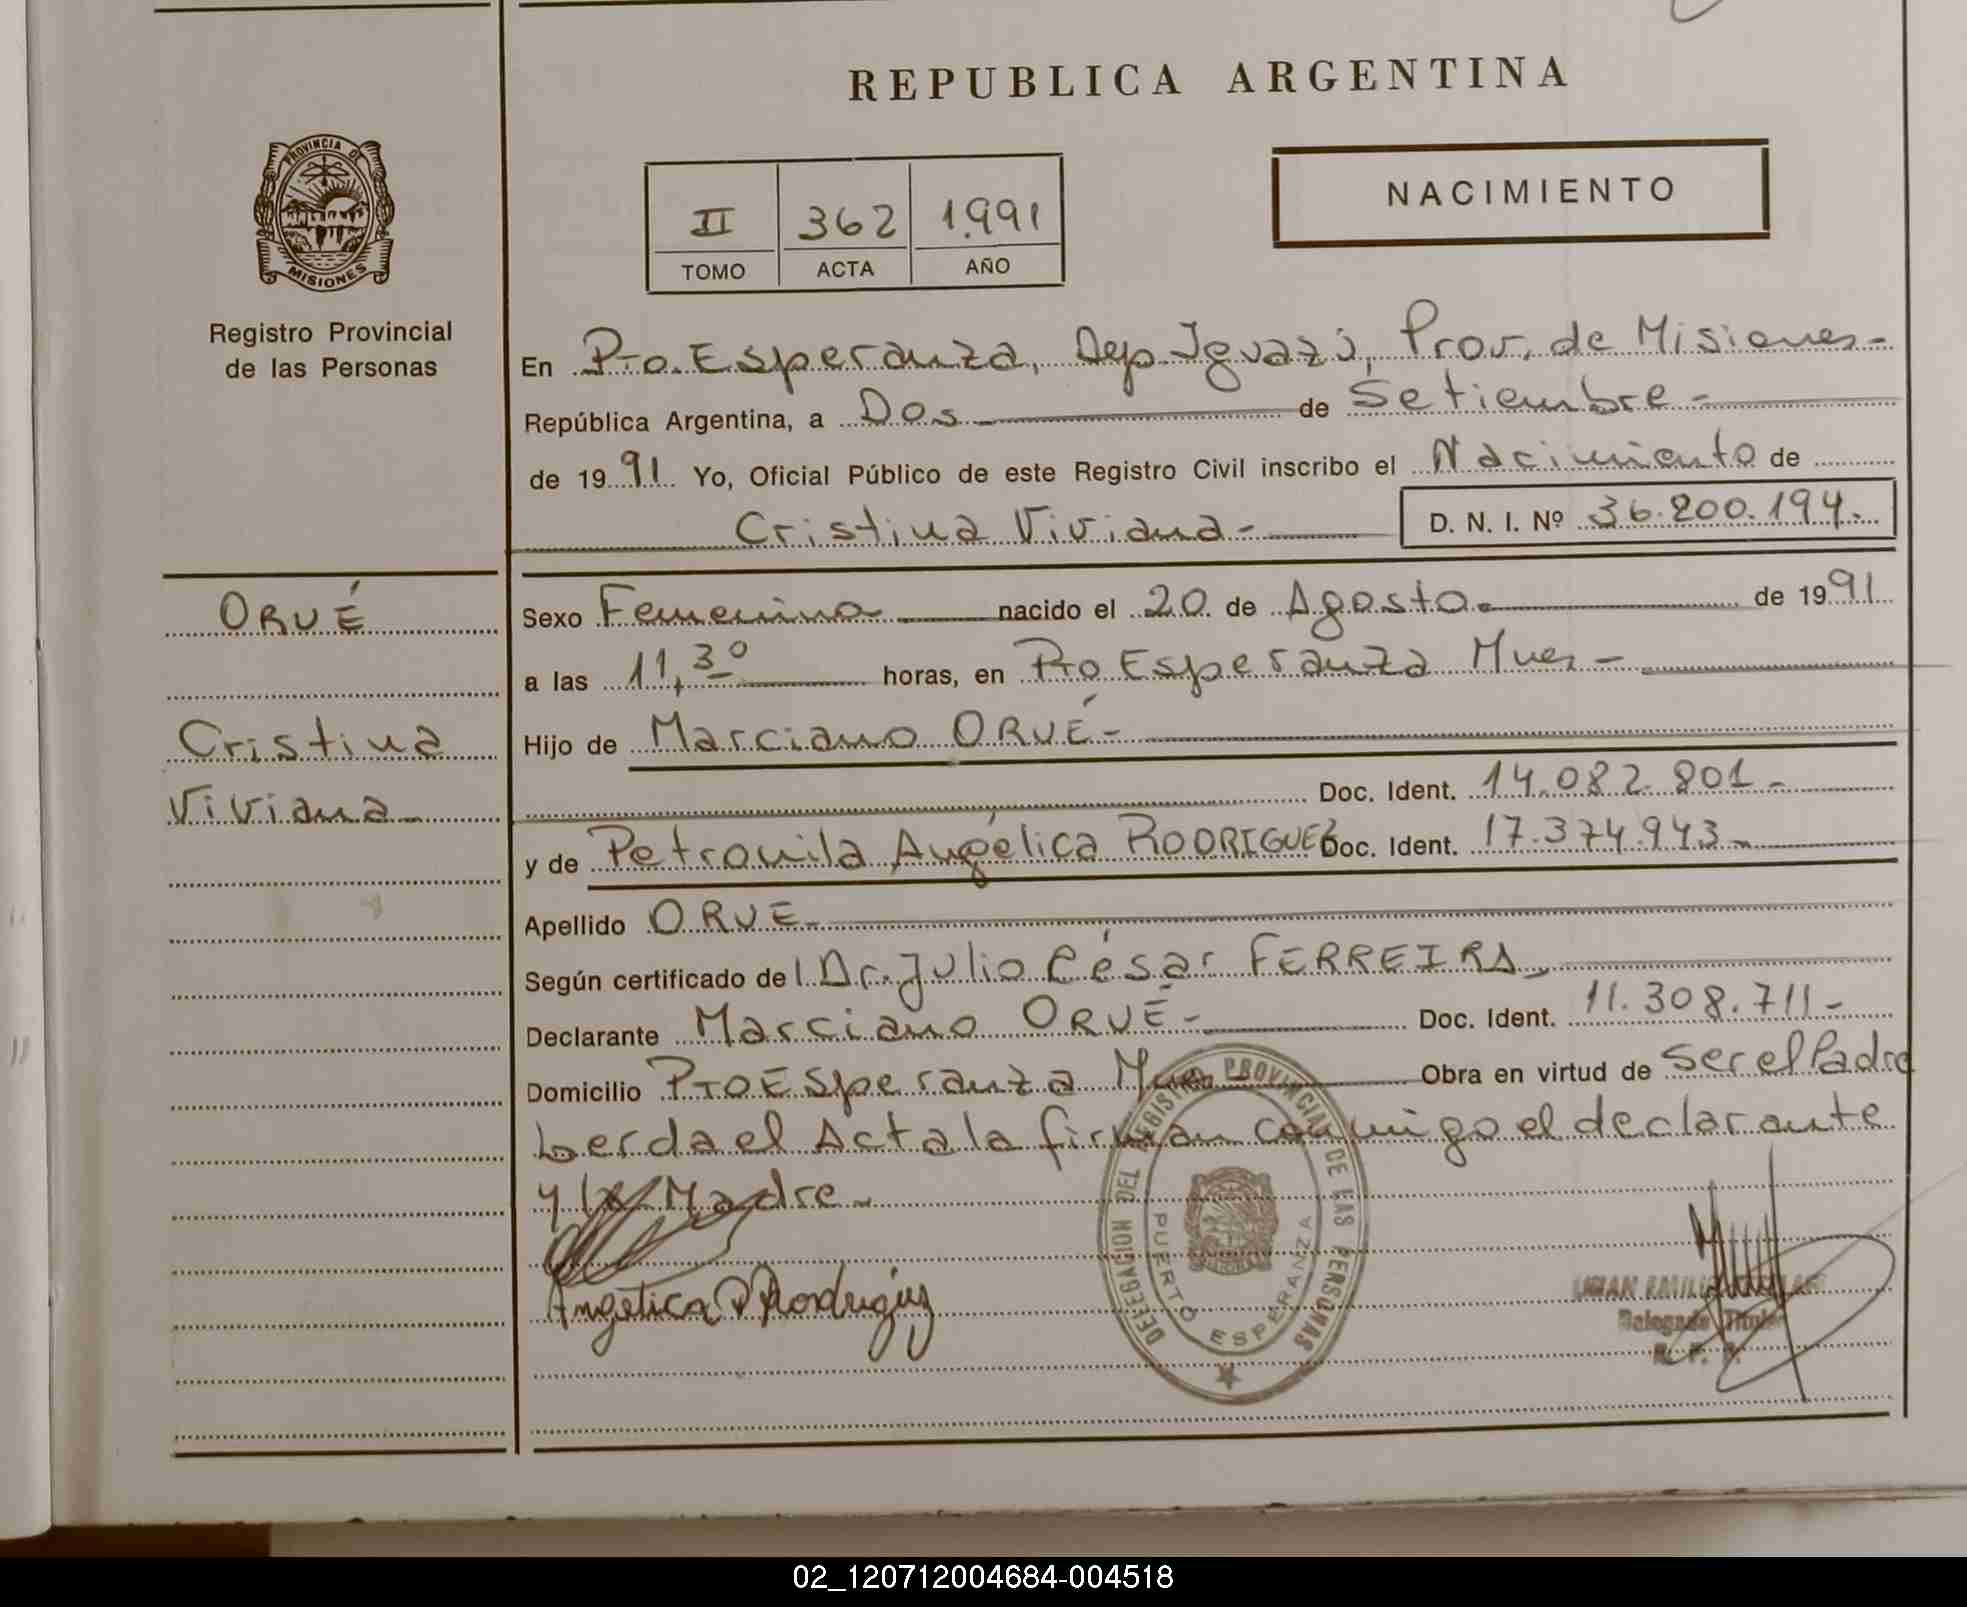 REPUBLICA ARGENTINA
PROVINCIA DE
MISIONES
Registro Provincial
de las Personas
II 362 1.991
TOMO ACTA AÑO
NACIMIENTO
En Pto. Esperanza, Dep. Iguazú, Prov. de Misiones-
República Argentina, a Dos de Setiembre-
de 1991 Yo, Oficial Público de este Registro Civil inscribo el Nacimiento de
Cristina Viviana-
D. N. I. Nº 36.200.194.-
ORUÉ
Cristina
Viviana-
Sexo Femenino- nacido el 20 de Agosto.- de 1991
a las 11,30 horas, en Pto Esperanza Mnes-
Hijo de Marciano ORUÉ-
Doc. Ident. 14.082.801-
y de Petronila Angélica RODRIGUEZ Doc. Ident. 17.374.943-
Apellido ORUE-
Según certificado del Dr. Julio César FERREIRA-
Declarante Marciano ORUÉ- Doc. Ident. 11.308.711-
Domicilio Pto Esperanza Obra en virtud de ser el Padre
Leida el Acta la firman conmigo el declarante
y la Madre-
Angelica P Rodriguez
DELEGACION DEL REGISTRO PROVINCIAL DE LAS PERSONAS
PUERTO ESPERANZA
Delegado Titular
R. P. P.
02_120712004684-004518